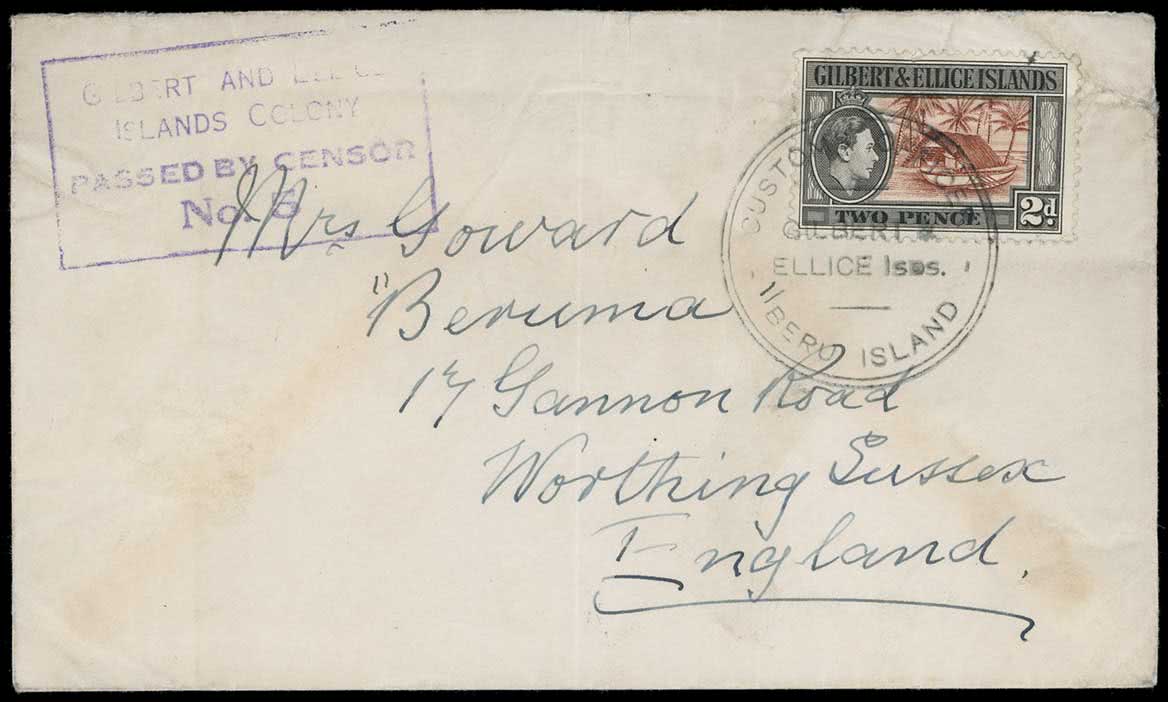 GILBERT AND ELLICE
ISLANDS COLONY
PASSED BY CENSOR
No. 6
GILBERT & ELLICE ISLANDS
TWO PENCE
2d.
CUSTOMS
GILBERT &
ELLICE Isds.
BERU ISLAND
Mrs Goward
"Beruma"
17 Gannon Road
Worthing Sussex
England.